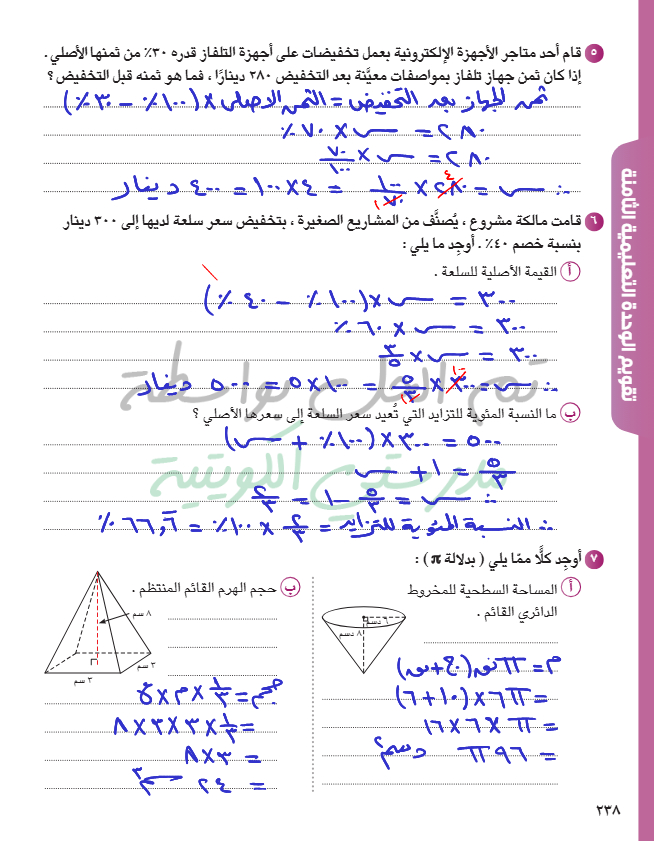 ٥ قام أحد متاجر الأجهزة الإلكترونية بعمل تخفيضات على أجهزة التلفاز قدره ٣٠٪ من ثمنها الأصلي .
إذا كان ثمن جهاز تلفاز بمواصفات معيَّنة بعد التخفيض ٢٨٠ دينارًا ، فما هو ثمنه قبل التخفيض ؟
ثمن الجهاز بعد التخفيض = الثمن الاصلى × (١٠٠٪ − ٣٠٪)
٢٨٠ = س × ٧٠٪
٢٨٠ = س × ٧٠/١٠٠
∴ س = ٢٨٠ × ١٠٠/٧٠ = ٤ × ١٠٠ = ٤٠٠ دينار
٤
١
٦ قامت مالكة مشروع ، يُصنَّف من المشاريع الصغيرة ، بتخفيض سعر سلعة لديها إلى ٣٠٠ دينار
بنسبة خصم ٤٠٪ . أوجِد ما يلي :
أ القيمة الأصلية للسلعة .
٣٠٠ = س × (١٠٠٪ − ٤٠٪)
٣٠٠ = س × ٦٠٪
٣٠٠ = س × ٣/٥
∴ س = ٣٠٠ × ٥/٣ = ١٠٠ × ٥ = ٥٠٠ دينار
١٠٠
١
تم التحميل بواسطة
ب ما النسبة المئوية للتزايد التي تُعيد سعر السلعة إلى سعرها الأصلي ؟
٥٠٠ = ٣٠٠ × (١٠٠٪ + س)
مدرستي الكويتية
٥/٣ = ١ + س
∴ س = ٥/٣ − ١ = ٢/٣
∴ النسبة المئوية للتزايد = ٢/٣ × ١٠٠٪ = ٦٦,٦٪
٧ أوجِد كلًّا ممّا يلي ( بدلالة π ) :
أ المساحة السطحية للمخروط
الدائري القائم .
٦ دسم
٨ دسم
م = π نق (ع + نق)
= π٦ × (١٠ + ٦)
= π × ٦ × ١٦
= ٩٦ π دسم٢
ب حجم الهرم القائم المنتظم .
٨ سم
٣ سم
٣ سم
حجم = ١/٣ × م × ع
= ١/٣ × ٣ × ٣ × ٨
= ٣ × ٨
= ٢٤ سم٣
تقويم الوحدة التعليمية الثامنة
٢٣٨